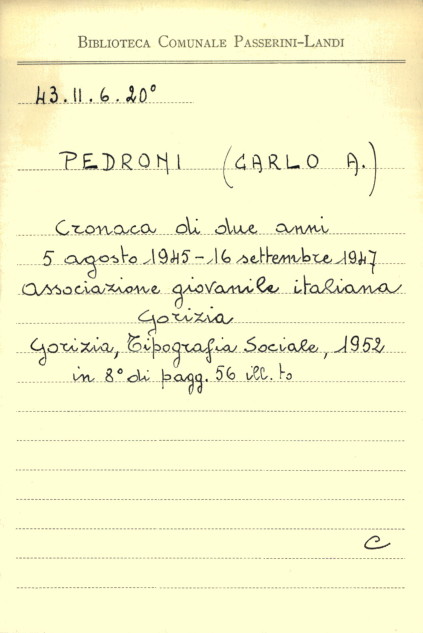 BIBLIOTECA COMUNALE PASSERINI-LANDI
43.II.6.20°
PEDRONI (CARLO A.)
Cronaca di due anni
5 agosto 1945-16 settembre 1947
associazione giovanile italiana
Gorizia
Gorizia, Tipografia Sociale, 1952
in 8° di pagg. 56 ill. to
C